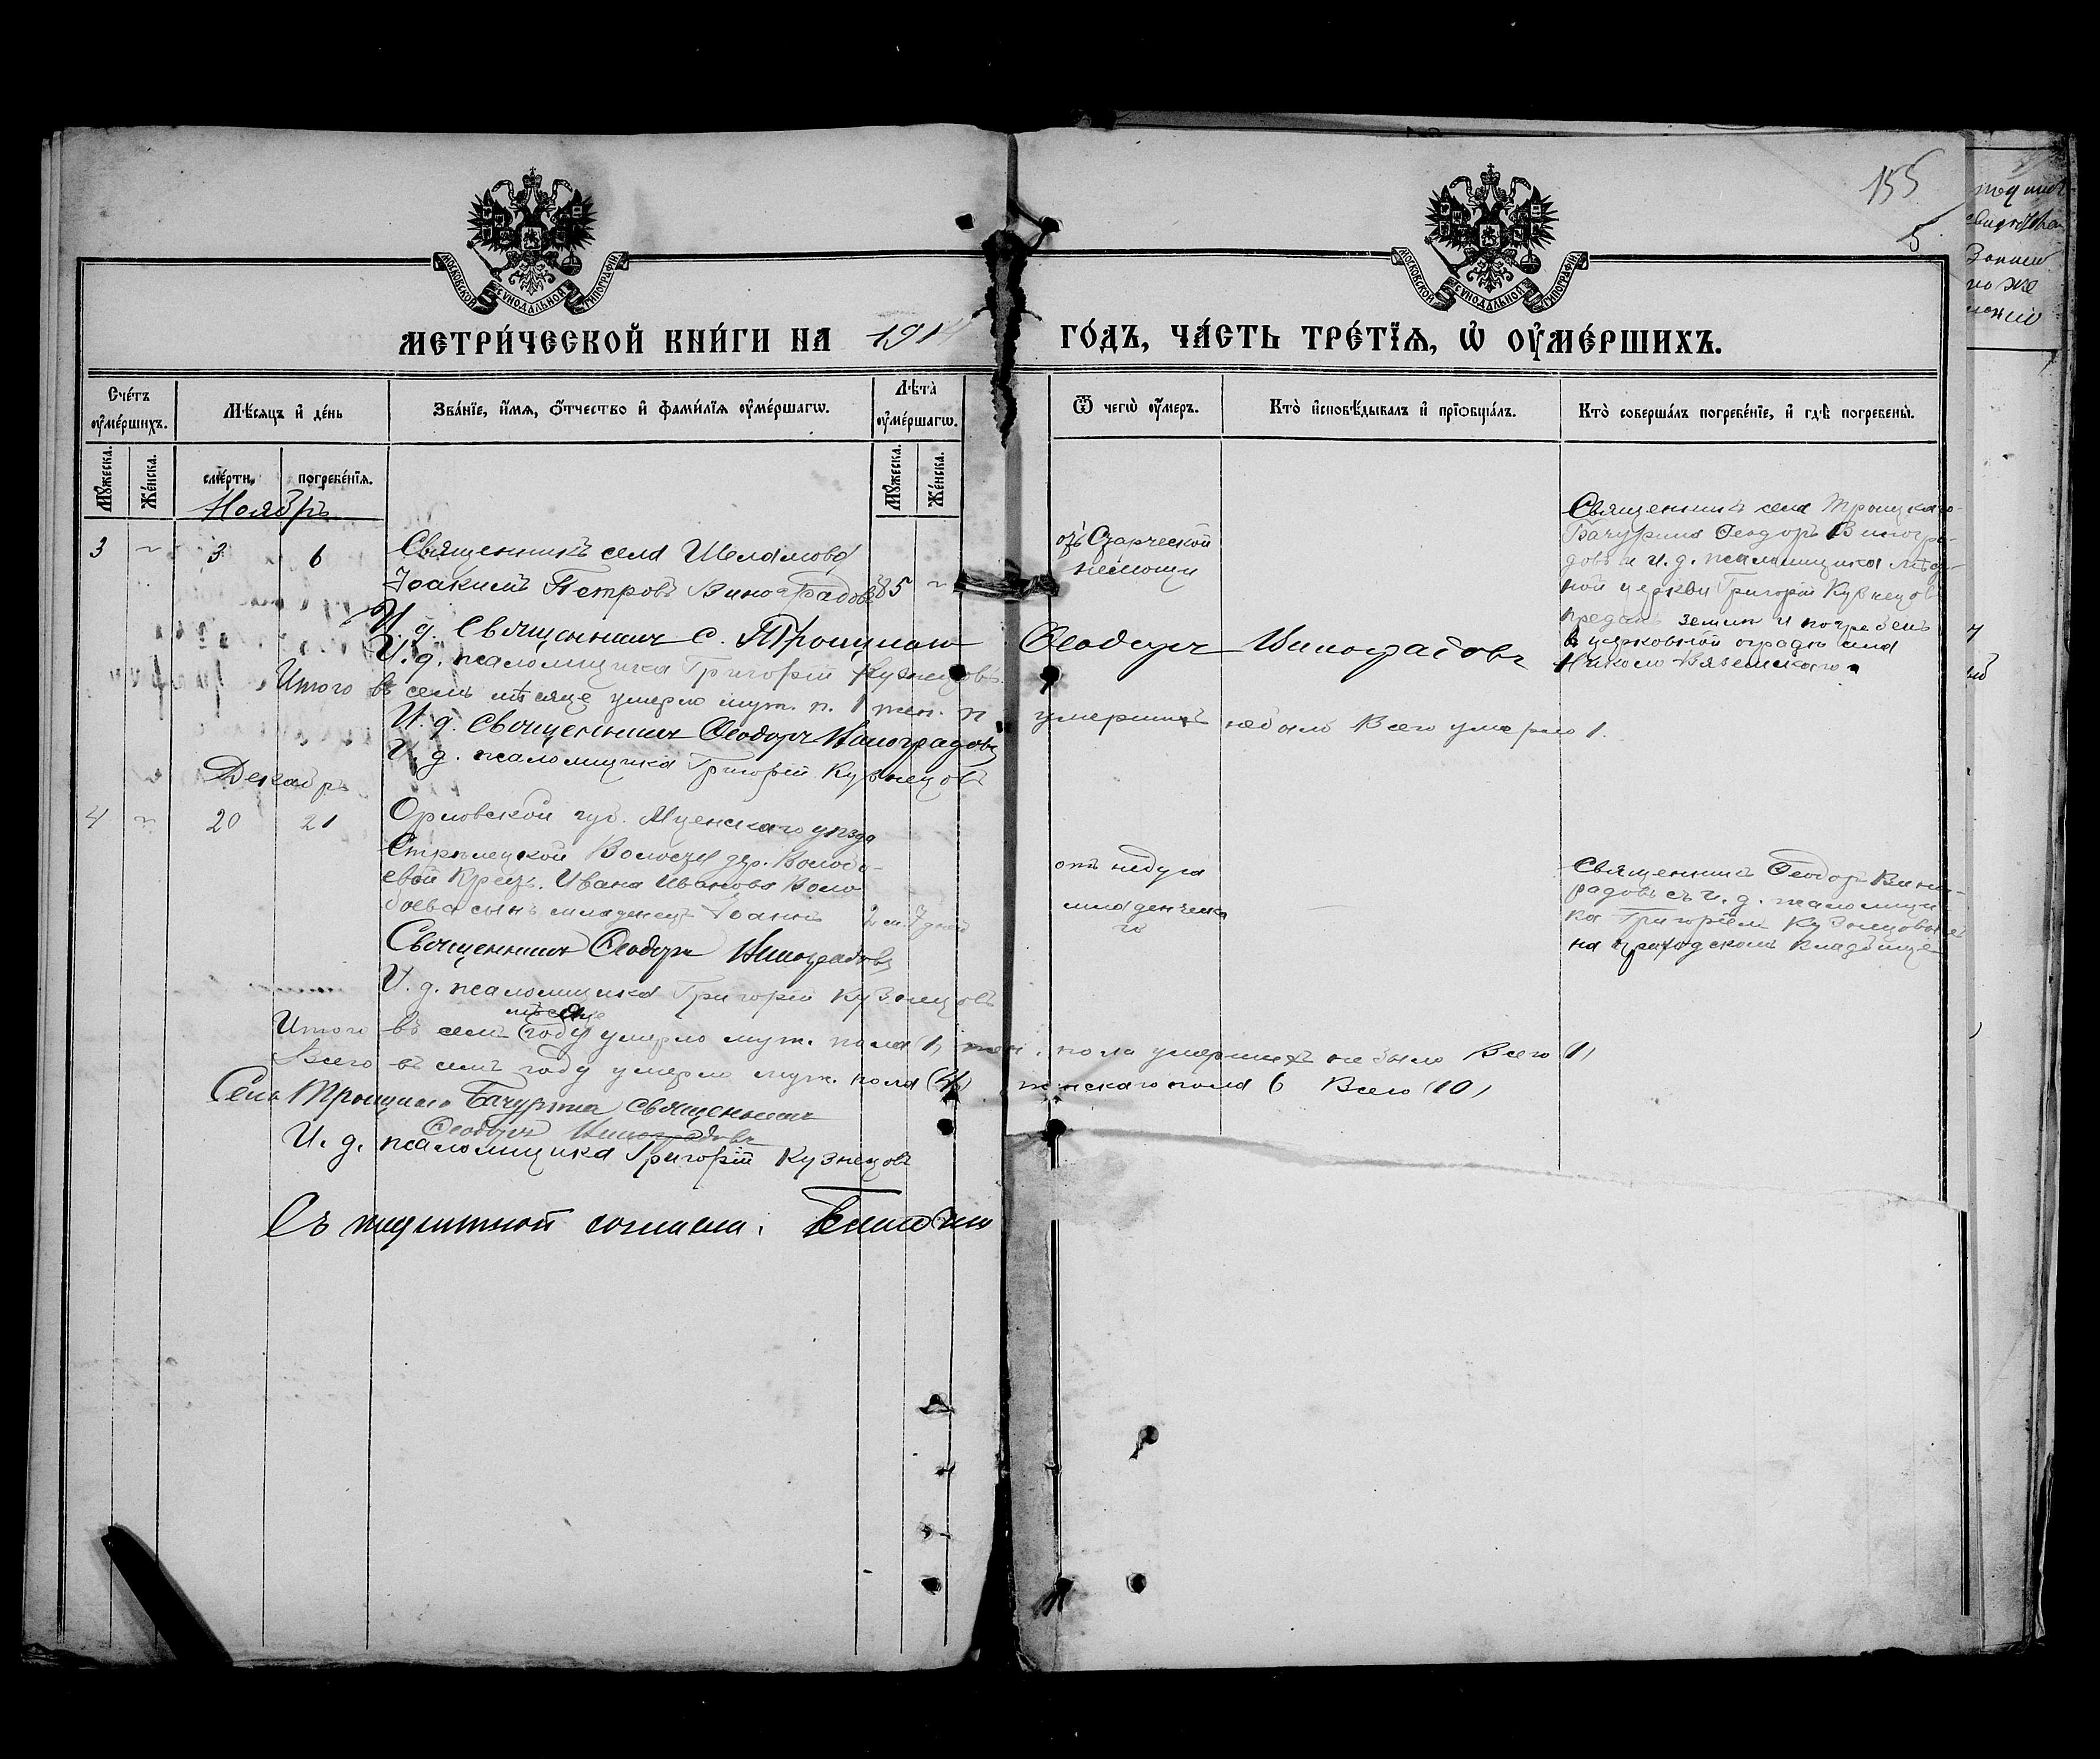 155
5
МОСКОВСКОЙ СѴНОДАЛЬНОЙ ТИПОГРАФІИ
МОСКОВСКОЙ СѴНОДАЛЬНОЙ ТИПОГРАФІИ
МЕТРИ́ЧЕСКОЙ КНИ́ГИ НА 1914 ГО́ДЪ, ЧА́СТЬ ТРЕ́ТЇѦ, Ѡ҆ ОУ҆МЕ́РШИХЪ.
Сче́тъ оу҆ме́ршихъ.
Мѣ́сяцъ и҆ де́нь
Зва́нїе, и҆́мя, ѻ҆́тчество и҆ фами́лїя оу҆ме́ршагѡ.
Лѣ́та оу҆ме́ршагѡ.
Ѿ чегѡ̀ оу҆́меръ.
Кто̀ и҆сповѣ́дывалъ и҆ прїѡбща́лъ.
Кто̀ соверша́лъ погребе́нїе, и҆ гдѣ̀ погребены̀.
Му́жеска.
Же́нска.
сме́рти,
погребе́нїя.
Му́жеска.
Же́нска.
Ноябрь
3 3 6
Священникъ села Шеламова
Іоакимъ Петровъ Виноградовъ 85
отъ Старческой
немощи
Священникъ села Троицкаго-
Бачурино Ѳеодоръ Виногра-
довъ и и. д. псаломщика
ной церкви Григорій Кузнецовъ
преданъ землѣ и погребенъ
въ церковной оградѣ села
Николо-Вяземскаго
И. д. Священникъ с. Троицкаго Ѳеодоръ Виноградовъ
И. д. псаломщика Григорій Кузнецовъ
Итого въ семъ мѣсяцѣ умерло муж. п. 1 жен. п умершихъ небыло Всего умерло 1.
И. д. Священникъ Ѳеодоръ Виноградовъ
И. д. псаломщика Григорій Кузнецовъ
Декабрь
4 20 21
Орловской губ. Мценскаго уѣзда
Стрѣлецкой Волости дер. Волобу-
евой Крест. Ивана Иванова Воло
боева сынъ младенецъ Іоаннъ 2 м. 7 дней
отъ недуга
младенческа
го
Священникъ Ѳеодоръ Виног-
радовъ съ и. д. псаломщи
ка Григоріемъ Кузнецовымъ
на приходскомъ кладбищѣ
Священникъ Ѳеодоръ Виноградовъ
И. д. псаломщика Григорій Кузнецовъ
мѣсяцѣ
Итого въ семъ (году) умерло муж. пола (1) жен. пола умершихъ не было Всего (1)
Всего въ семъ году умерло муж. пола (4) женскаго пола 6 Всего (10)
Села Троицкаго Бачурина священникъ
Ѳеодоръ Виноградовъ
И. д. псаломщика Григорій Кузнецовъ
Съ подлинной согласна.